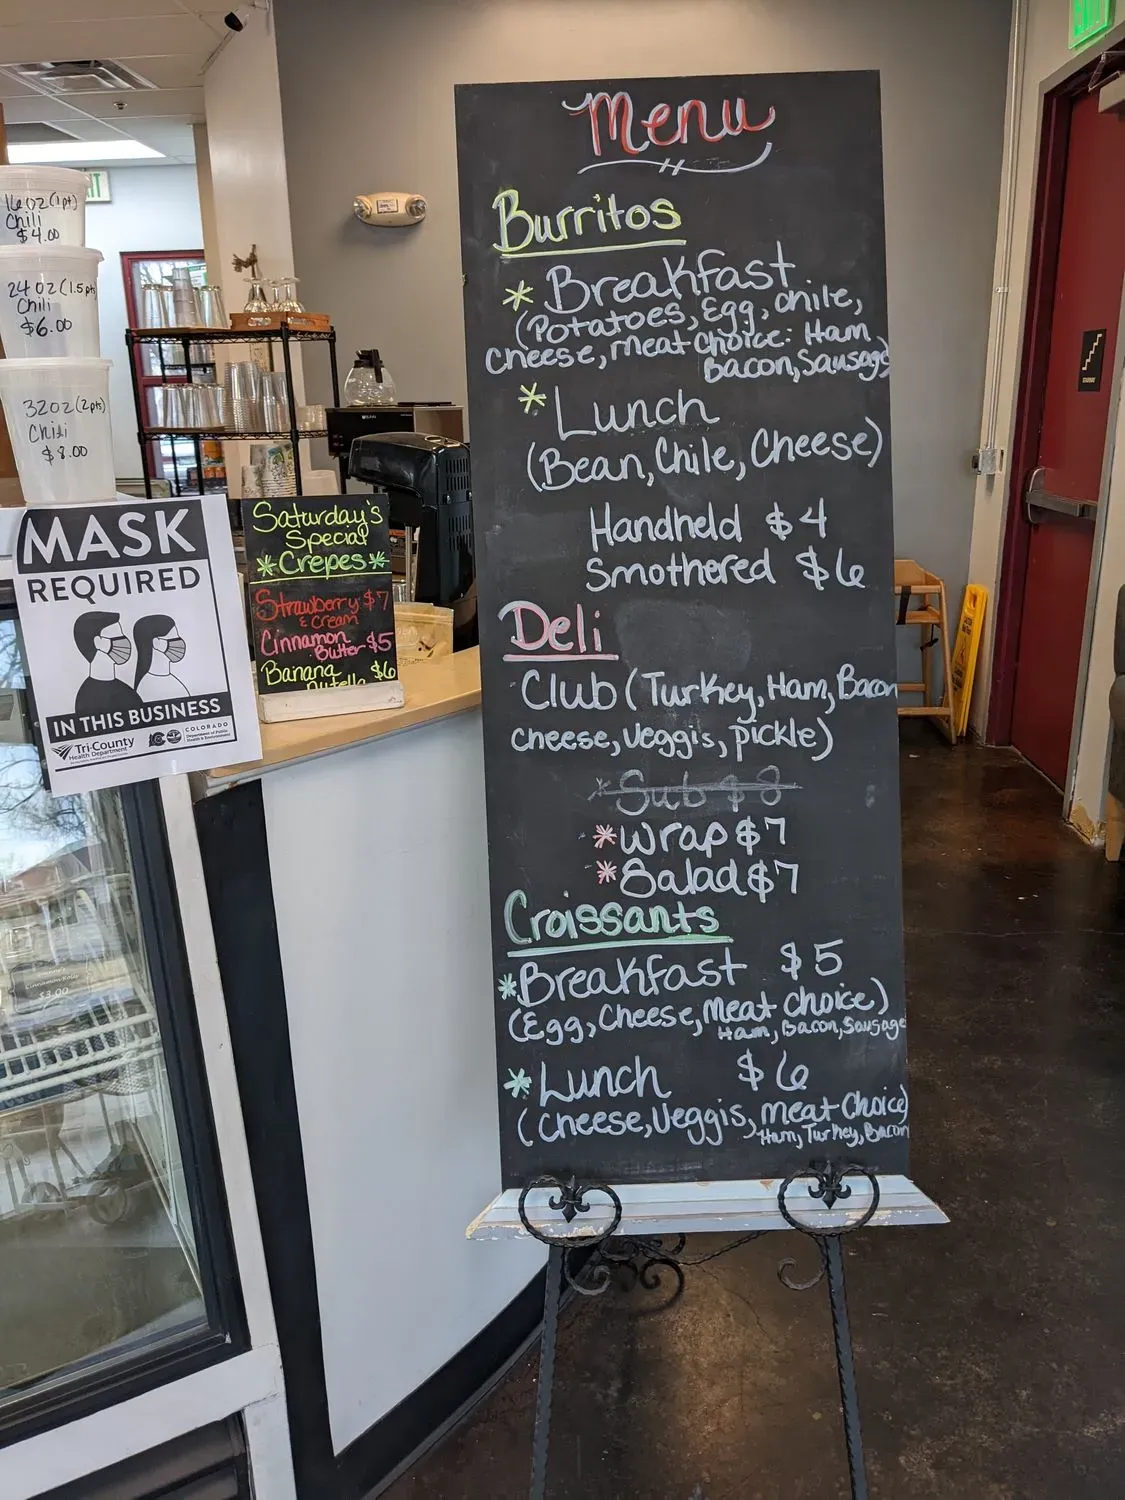 16oz (1pt)
Chili
$4.00
24oz (1.5pts)
Chili
$6.00
32oz (2pts)
Chili
$8.00
MASK
REQUIRED
IN THIS BUSINESS
Tri-County
Health Department
COLORADO
Department of Public
Health & Environment
Saturday's
Special
*Crepes*
Strawberry $7
& Cream
Cinnamon
Butter $5
Banana $6
nutella
$3.00
Menu
Burritos
* Breakfast
(Potatoes, Egg, chile,
cheese, meat choice: Ham
Bacon, Sausage
* Lunch
(Bean, Chile, Cheese)
Handheld $4
Smothered $6
Deli
Club (Turkey, Ham, Bacon
cheese, veggis, pickle)
* Sub $8
* Wrap $7
* Salad $7
Croissants
* Breakfast $5
(Egg, Cheese, Meat choice)
Ham, Bacon, Sausage
* Lunch $6
(Cheese, Veggis, Meat Choice)
Ham, Turkey, Bacon